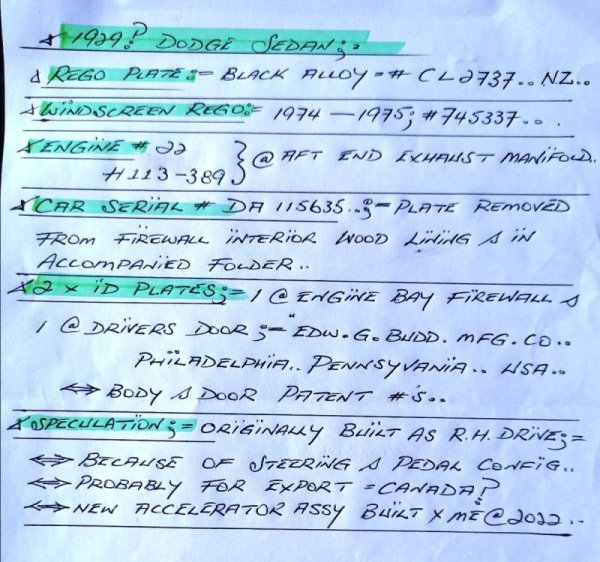 * 1929? DODGE SEDAN;:
Δ REGO PLATE:= BLACK ALLOY = # CL2737.. NZ..
* WINDSCREEN REGO:= 1974 — 1975; #745337...
* ENGINE # 22
H113-389 } @ AFT END EXHAUST MANIFOLD..
* CAR SERIAL # DA 115635..;= PLATE REMOVED
FROM FIREWALL INTERIOR WOOD LINING & IN
ACCOMPANIED FOLDER..
* 2 x ID PLATES;= 1 @ ENGINE BAY FIREWALL &
1 @ DRIVERS DOOR;= "EDW. G. BUDD. MFG. CO..
PHILADELPHIA.. PENNSYVANIA.. USA..
⇔ BODY & DOOR PATENT #'S..
* SPECULATION;= ORIGINALLY BUILT AS R.H. DRIVE;=
⇔ BECAUSE OF STEERING & PEDAL CONFIG..
⇔ PROBABLY FOR EXPORT = CANADA?
⇔ NEW ACCELERATOR ASSY BUILT x ME @ 2022...